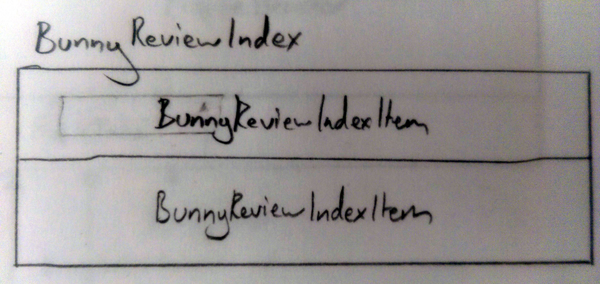 BunnyReviewIndex
BunnyReviewIndexItem
BunnyReviewIndexItem